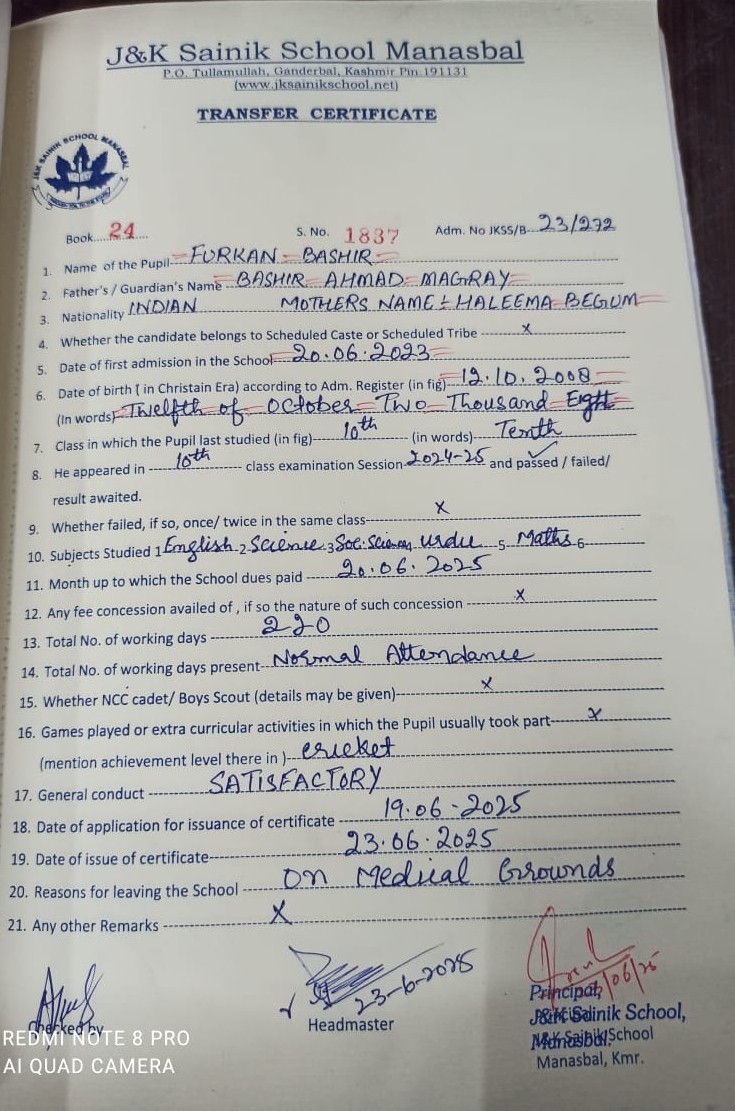 J&K Sainik School Manasbal
P.O. Tullamullah, Ganderbal, Kashmir Pin:191131
(www.jksainikschool.net)
TRANSFER CERTIFICATE
J&K SAINIK SCHOOL MANASBAL
Book.....24.... S. No. 1837 Adm. No JKSS/B- 23/272
1. Name of the Pupil FURKAN BASHIR
2. Father's / Guardian's Name BASHIR AHMAD MAGRAY
3. Nationality INDIAN MOTHERS NAME :- HALEEMA BEGUM
4. Whether the candidate belongs to Scheduled Caste or Scheduled Tribe x
5. Date of first admission in the School 20.06.2023
6. Date of birth ( in Christain Era) according to Adm. Register (in fig) 12.10.2008
(In words) Twelfth of October Two Thousand Eight
7. Class in which the Pupil last studied (in fig) 10th (in words) Tenth
8. He appeared in 10th class examination Session 2024-25 and passed / failed/
result awaited.
9. Whether failed, if so, once/ twice in the same class x
10. Subjects Studied 1 English 2 Science 3 Soc. Sciences Urdu 5 Maths 6
11. Month up to which the School dues paid 20.06.2025
12. Any fee concession availed of , if so the nature of such concession x
13. Total No. of working days 220
14. Total No. of working days present Normal Attendance
15. Whether NCC cadet/ Boys Scout (details may be given) x
16. Games played or extra curricular activities in which the Pupil usually took part x
(mention achievement level there in ) cricket
17. General conduct SATISFACTORY
18. Date of application for issuance of certificate 19.06-2025
19. Date of issue of certificate 23.06.2025
20. Reasons for leaving the School On Medical Grownds
21. Any other Remarks X
23-6-2025
Checked by
Headmaster
Principal,
J&K Sainik School,
Manasbal.
J&K Sainik School
Manasbal, Kmr.
REDMI NOTE 8 PRO
AI QUAD CAMERA